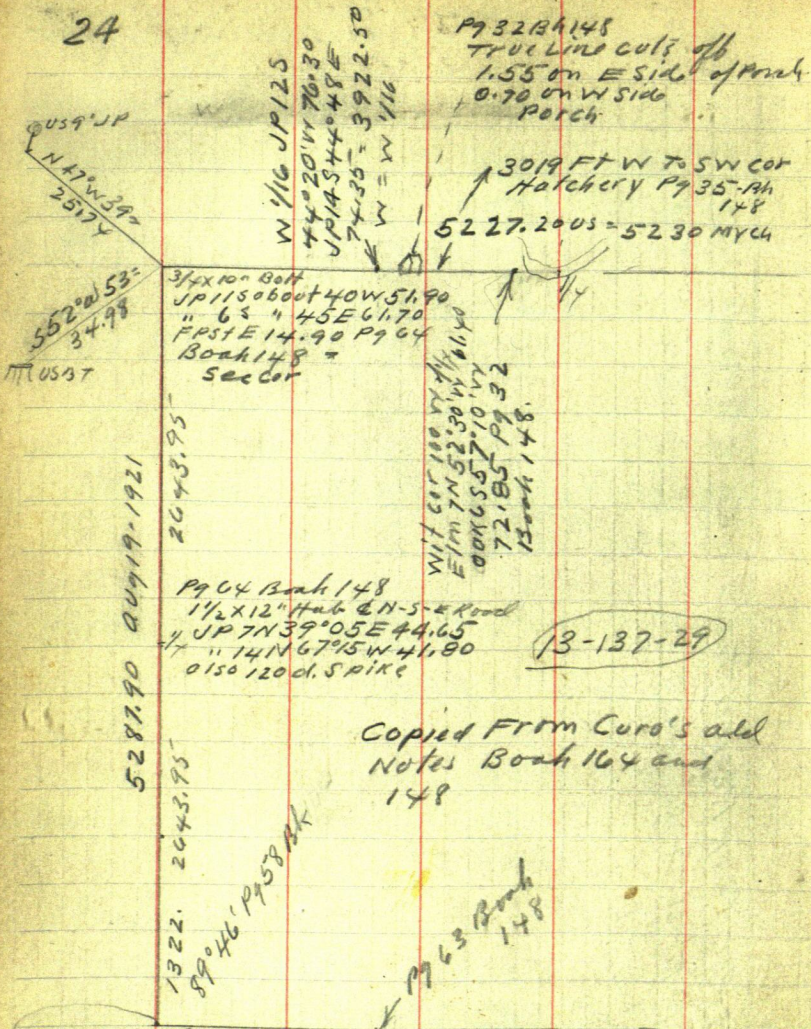 24
Pg 32 Bk 148
True Line cuts off
1.55 on E Side of Porch
0.70 on W Side
Porch
W 1/16 JP 12 S
44°20'W 76.30
JP 14 S 44°48 E
74.35 = 3922.50
W = W 1/16
US 9" JP
N 47° W 39=
25.74
3019 Ft W To SW cor
Hatchery Pg 35-Bk
148
5227.20 US = 5230 Mych
1/4
S 52° W 53=
34.98
US BT
3/4 x 10" Bolt
JP 11 S about 40 W 51.90
" 6 S " 45 E 61.70
F Pst E 14.90 Pg 64
Book 148 =
Sec cor
Wit Cor 100 W 1/4
Elm 7 N 52°30'W 61.40
Oak 6 S 57°10'W
72.85 Pg 32
Book 148.
2643.95
5287.90 Aug 19-1921
Pg 64 Book 148
1 1/2 x 12" Hub ₵ N-S-E Road
1/4 JP 7 N 39°05 E 44.65
" 14 N 67°15 W 41.80
also 120 d. Spike
13-137-29
Copied From Curo's old
Notes Book 164 and
148
2643.95
1322.
89°46' Pg 58 Bk
Pg 63 Book
148